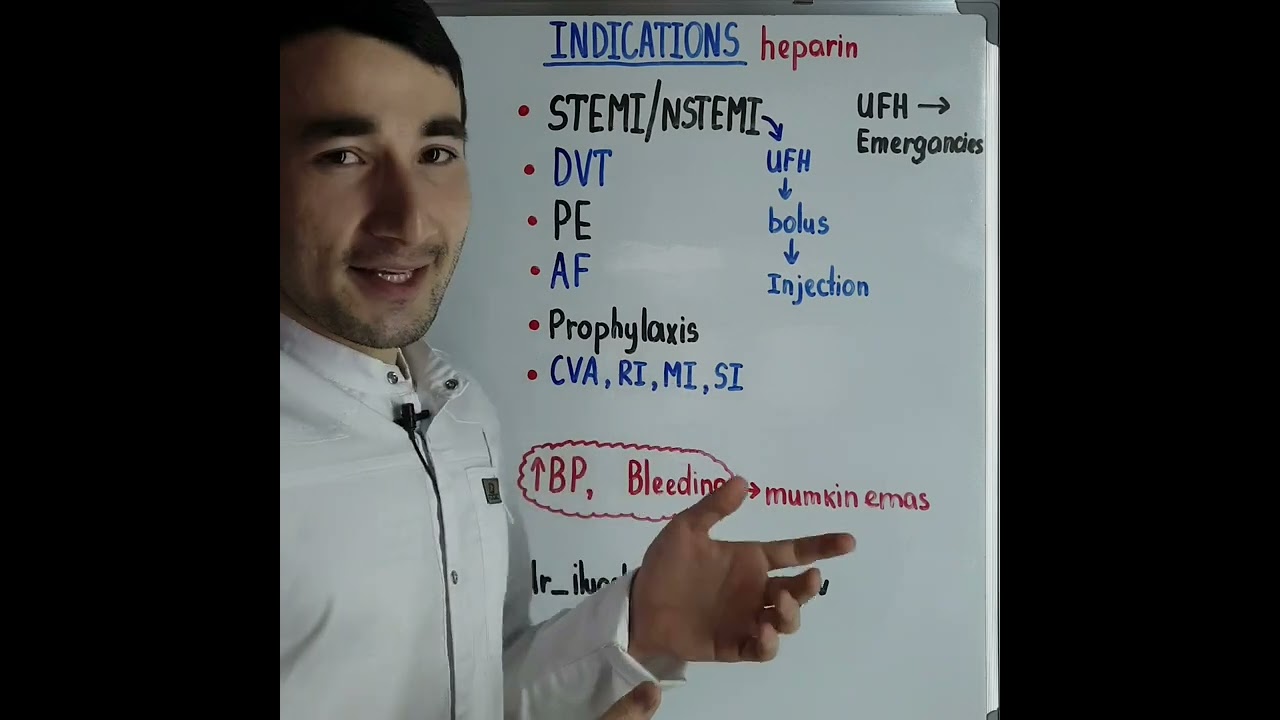 INDICATIONS heparin
• STEMI/NSTEMI
• DVT
• PE
• AF
• Prophylaxis
• CVA, RI, MI, SI
UFH →
Emergancies
UFH
↓
bolus
↓
Injection
↑BP, Bleeding → mumkin emas